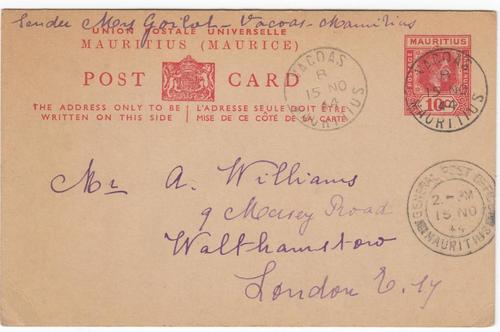 Sender Mrs Goilot - Vacoas - Mauritius
UNION POSTALE UNIVERSELLE
MAURITIUS (MAURICE)
POST CARD
THE ADDRESS ONLY TO BE WRITTEN ON THIS SIDE
L'ADRESSE SEULE DOIT ÊTRE MISE DE CE CÔTÉ DE LA CARTE
VACOAS
B
15 NO
44
MAURITIUS
MAURITIUS
POSTAGE
10c
VACOAS
B
15 NO
44
MAURITIUS
GENERAL POST OFFICE
2 - PM
15 NO
44
MAURITIUS
Mr A. Williams
9 Mersey Road
Walthamstow
London E. 17